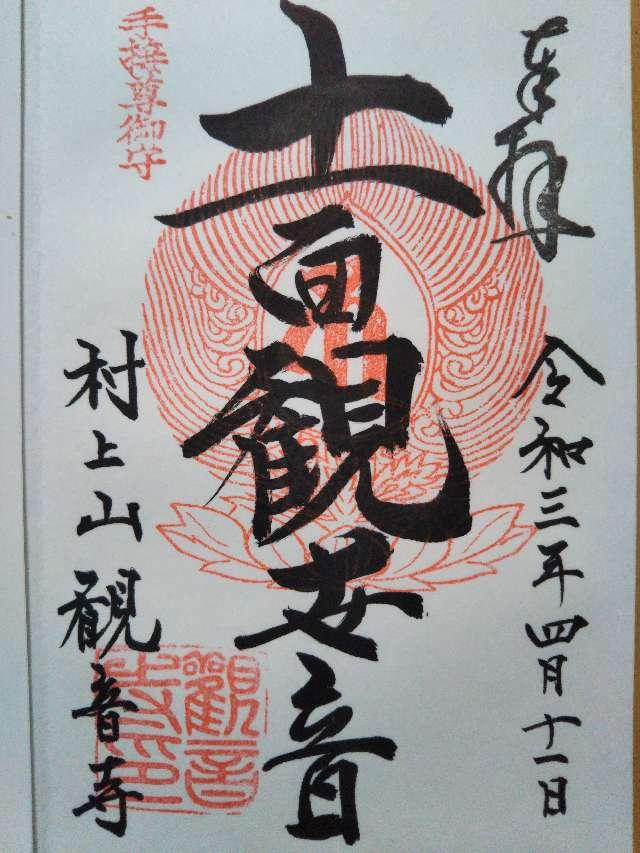 奉拝
令和三年四月十一日
十一面観世音
手接尊御守
村上山観音寺
觀音寺印